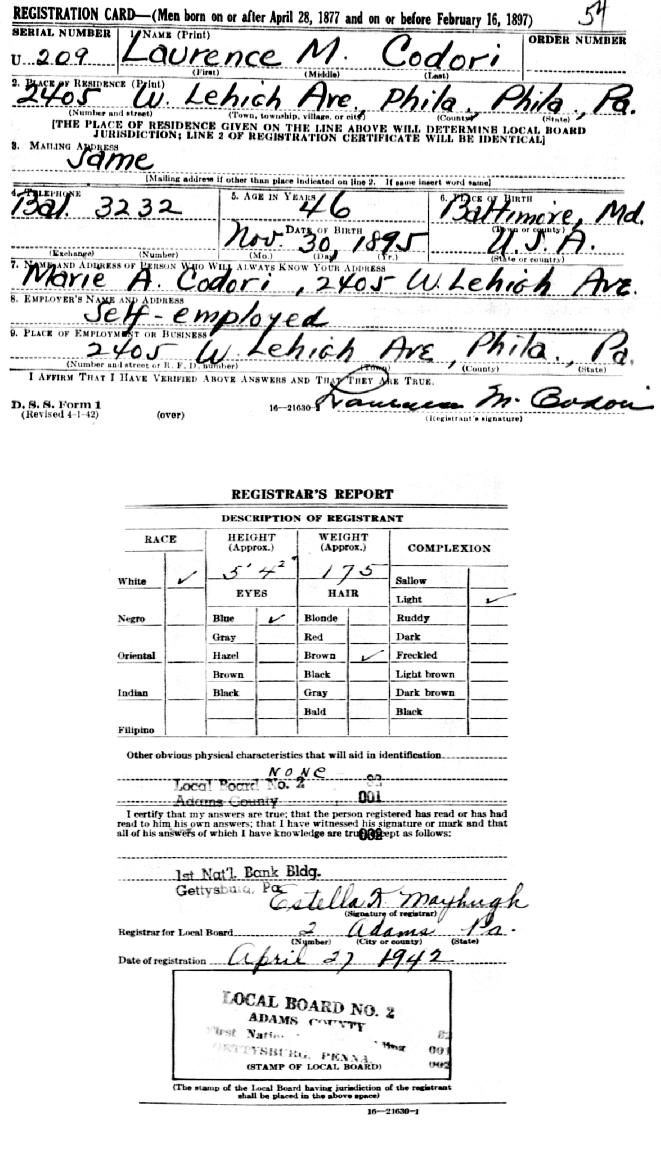 REGISTRATION CARD—(Men born on or after April 28, 1877 and on or before February 16, 1897) 54
SERIAL NUMBER 1. NAME (Print) ORDER NUMBER
U 209 Laurence M. Codori
(First) (Middle) (Last)
2. PLACE OF RESIDENCE (Print)
2405 W. Lehigh Ave, Phila., Phila., Pa.
(Number and street) (Town, township, village, or city) (County) (State)
[THE PLACE OF RESIDENCE GIVEN ON THE LINE ABOVE WILL DETERMINE LOCAL BOARD
JURISDICTION; LINE 2 OF REGISTRATION CERTIFICATE WILL BE IDENTICAL]
3. MAILING ADDRESS
Same
[Mailing address if other than place indicated on line 2. If same insert word same]
4. TELEPHONE 5. AGE IN YEARS 6. PLACE OF BIRTH
Bal. 3232 46 Baltimore, Md.
DATE OF BIRTH (Town or county)
Nov. 30, 1895 U.S.A.
(Exchange) (Number) (Mo.) (Day) (Yr.) (State or country)
7. NAME AND ADDRESS OF PERSON WHO WILL ALWAYS KNOW YOUR ADDRESS
Marie A. Codori, 2405 W. Lehigh Ave.
8. EMPLOYER'S NAME AND ADDRESS
Self-employed
9. PLACE OF EMPLOYMENT OR BUSINESS
2405 W. Lehigh Ave, Phila., Pa.
(Number and street or R. F. D. number) (Town) (County) (State)
I AFFIRM THAT I HAVE VERIFIED ABOVE ANSWERS AND THAT THEY ARE TRUE.
D. S. S. Form 1 16—21630-1 Laurence M. Codori
(Revised 4-1-42) (over) (Registrant's signature)
REGISTRAR'S REPORT
DESCRIPTION OF REGISTRANT
RACE HEIGHT (Approx.) WEIGHT (Approx.) COMPLEXION
5' 4" 175
White ✓ Sallow
EYES HAIR Light ✓
Negro Blue ✓ Blonde Ruddy
Gray Red Dark
Oriental Hazel Brown ✓ Freckled
Brown Black Light brown
Indian Black Gray Dark brown
Bald Black
Filipino
Other obvious physical characteristics that will aid in identification
NONE
Local Board No. 2 82
Adams County 001
I certify that my answers are true; that the person registered has read or has had
read to him his own answers; that I have witnessed his signature or mark and that
all of his answers of which I have knowledge are true, except as follows:
002
1st Nat'l. Bank Bldg.
Gettysburg, Pa.
Estella K. Mayhugh
(Signature of registrar)
Registrar for Local Board 2 Adams Pa.
(Number) (City or county) (State)
Date of registration April 27 1942
LOCAL BOARD NO. 2
ADAMS COUNTY
First 82
001
GETTYSBURG, PENNA. 002
(STAMP OF LOCAL BOARD)
(The stamp of the Local Board having jurisdiction of the registrant
shall be placed in the above space)
16—21630-1